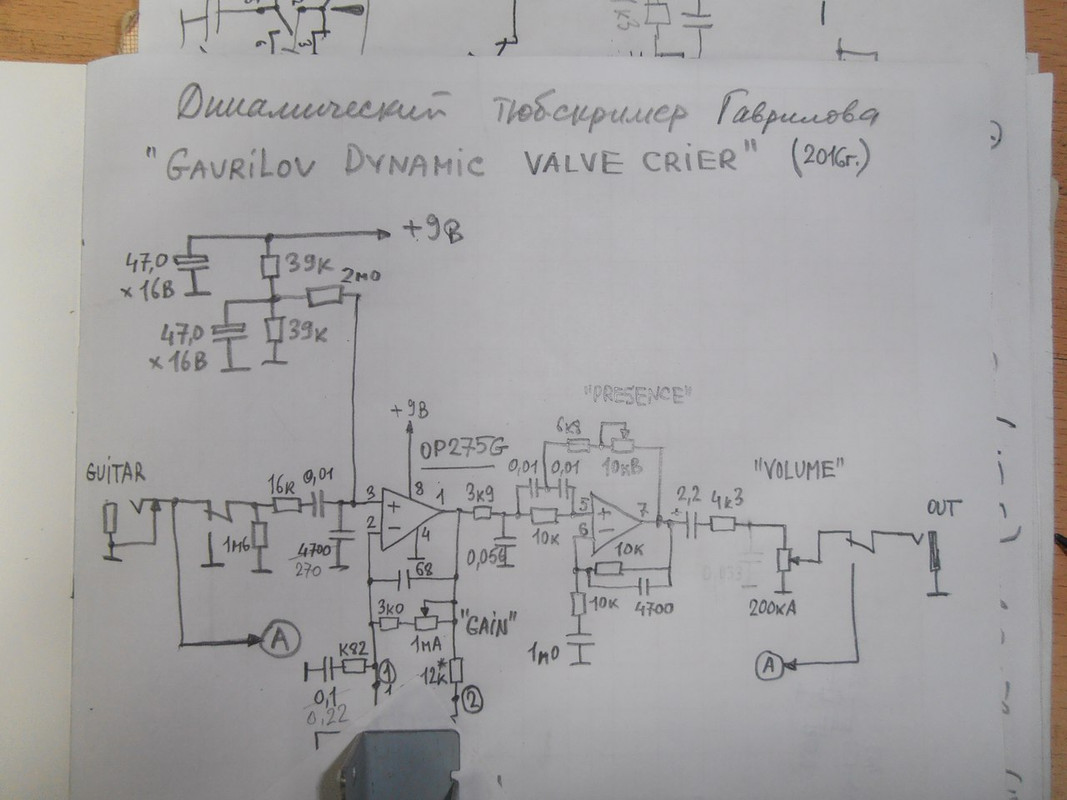 Динамический тюбскример Гаврилова
"GAVRILOV DYNAMIC VALVE CRIER" (2016г.)
+9В
47,0
x 16В
39к
2м0
47,0
x 16В
39к
"PRESENCE"
+9В
OP275G
6к8
10кВ
GUITAR
16к
0,01
3
8
1
3к9
0,01
0,01
5
7
2,2
4к3
"VOLUME"
OUT
2
4
6
1м6
4700
270
0,056
10к
10к
68
3к0
1мА
"GAIN"
10к
4700
0,033
200кА
A
к82
1
12к*
1м0
A
0,1
0,22
1
2